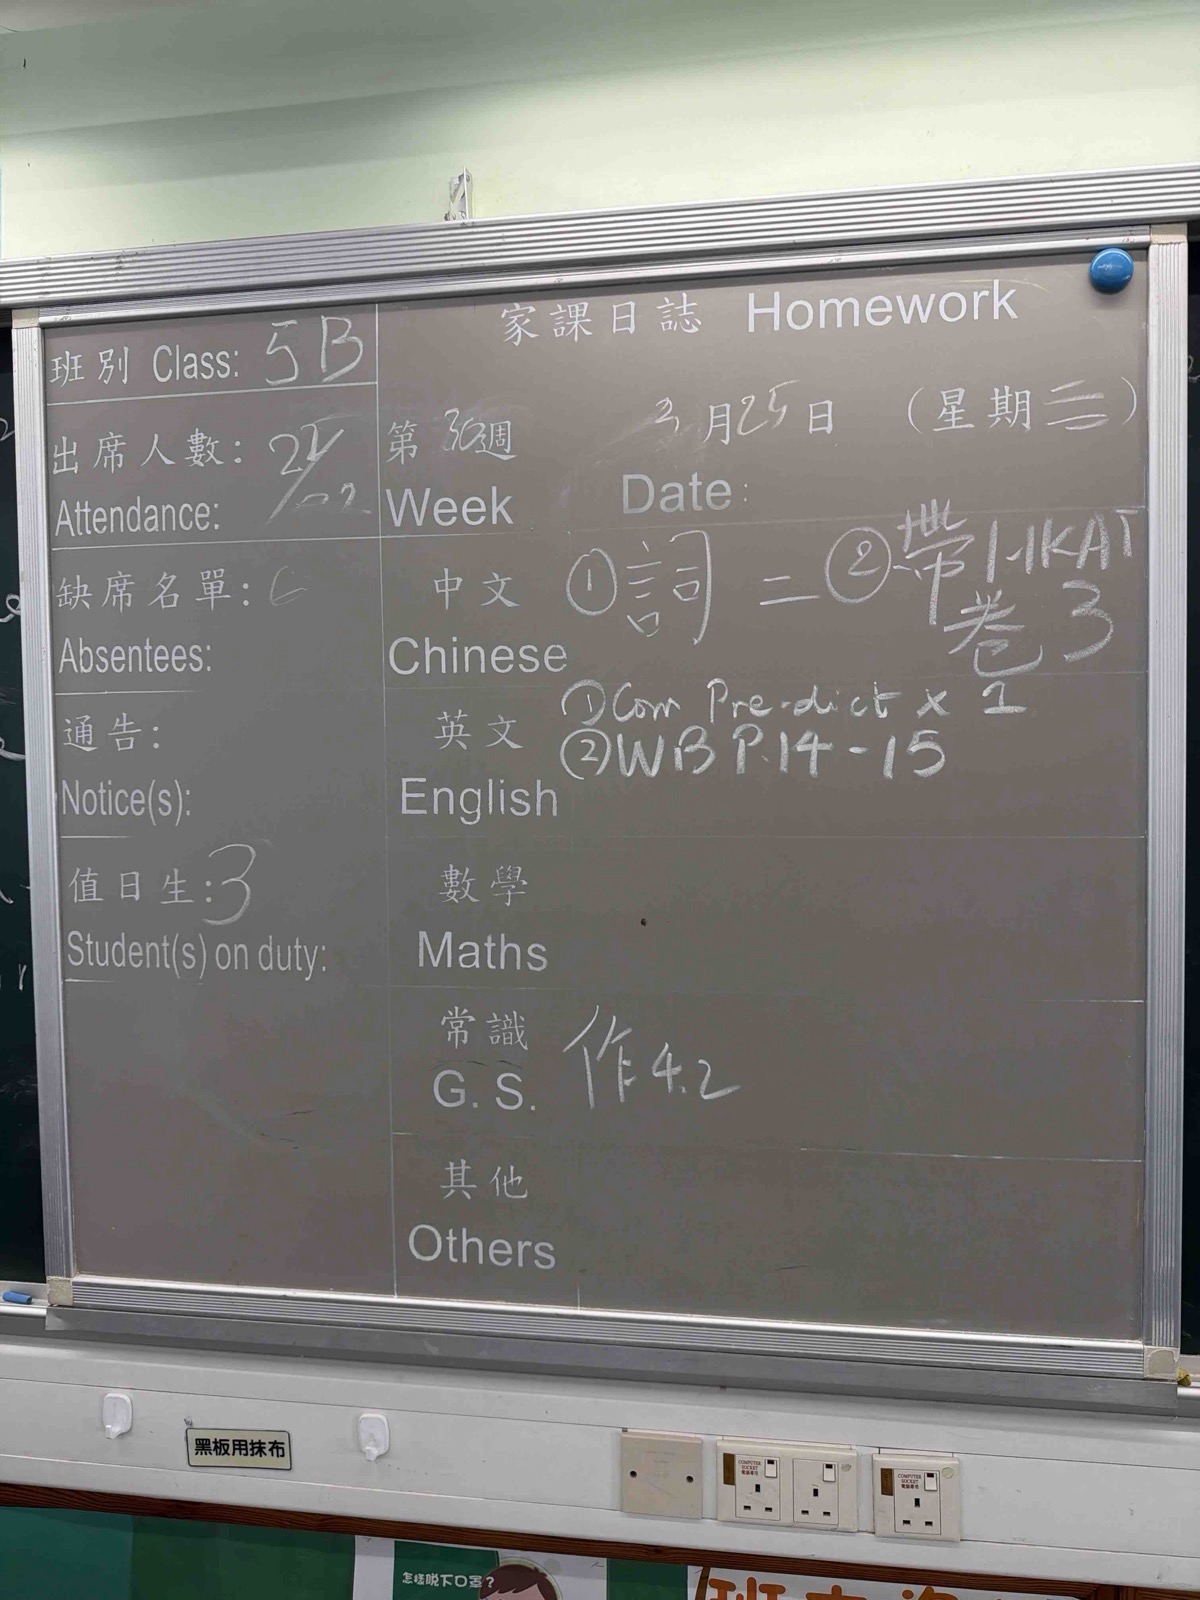 家課日誌 Homework
班別 Class: 5B
出席人數:
Attendance:
第30週
Week
3月25日 (星期三)
Date:
缺席名單:
Absentees:
中文 ①詞二 ②帶HKAT
卷3
Chinese
通告:
Notice(s):
英文 ①Com Pre-dict x 1
②WB P.14-15
English
值日生:3
Student(s) on duty:
數學
Maths
常識 作4.2
G. S.
其他
Others
黑板用抹布
COMPUTER SOCKET
COMPUTER SOCKET
怎樣脫下口罩?